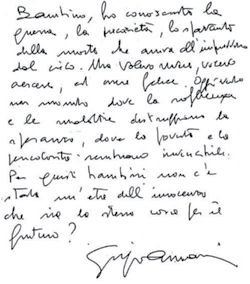 Bambino, ho conosciuto la
guerra, la precarietà, lo spavento
della morte che arriva all'improvviso
dal cielo. Ma volevo vivere, volevo
crescere, ed essere felice. Oggi vedo
un mondo dove la sofferenza
e le malattie distruggono la
speranza, dove la povertà e la
sembrano invincibili.
Per questi bambini non c'è
stata un'età dell'innocenza
che sia la stessa cosa per il
futuro?